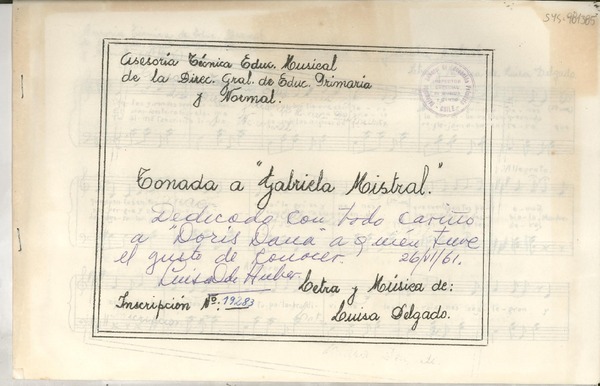 sys-981385
Asesoría Técnica Educ. Musical
de la Direc. Gral. de Educ. Primaria
y Normal.
Tonada a "Gabriela Mistral."
Dedicada con todo cariño
a "Doris Dana" a quién tuve
el gusto de conocer. 26/VI/61.
Luisa D de Huber.
Letra y Música de:
Inscripción No. 19283
Luisa Delgado.